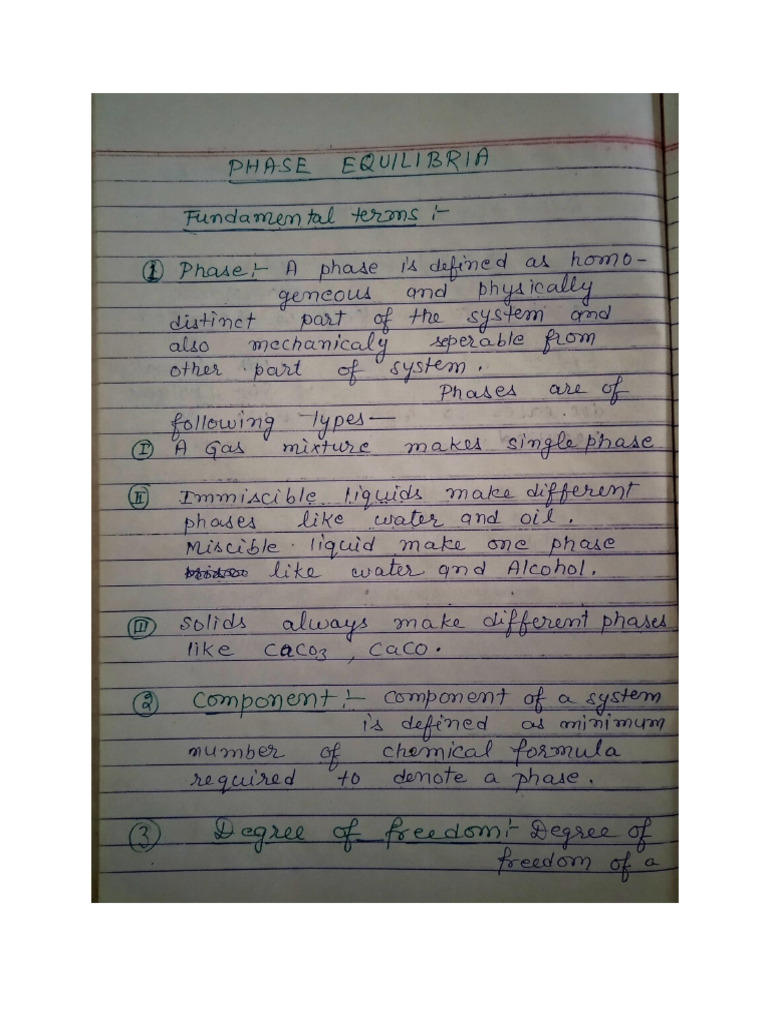 PHASE EQUILIBRIA
Fundamental terms :-
① Phase :- A phase is defined as homo-
geneous and physically
distinct part of the system and
also mechanicaly seperable from
other part of system.
Phases are of
following Types —
Ⓘ A Gas mixture makes single phase
Ⅱ Immiscible liquids make different
phases like water and oil.
Miscible liquid make one phase
like water and Alcohol.
Ⅲ Solids always make different phases
like CaCO3, CaCO.
② Component :- Component of a system
is defined as minimum
number of chemical formula
required to denote a phase.
③ Degree of freedom :- Degree of
freedom of a